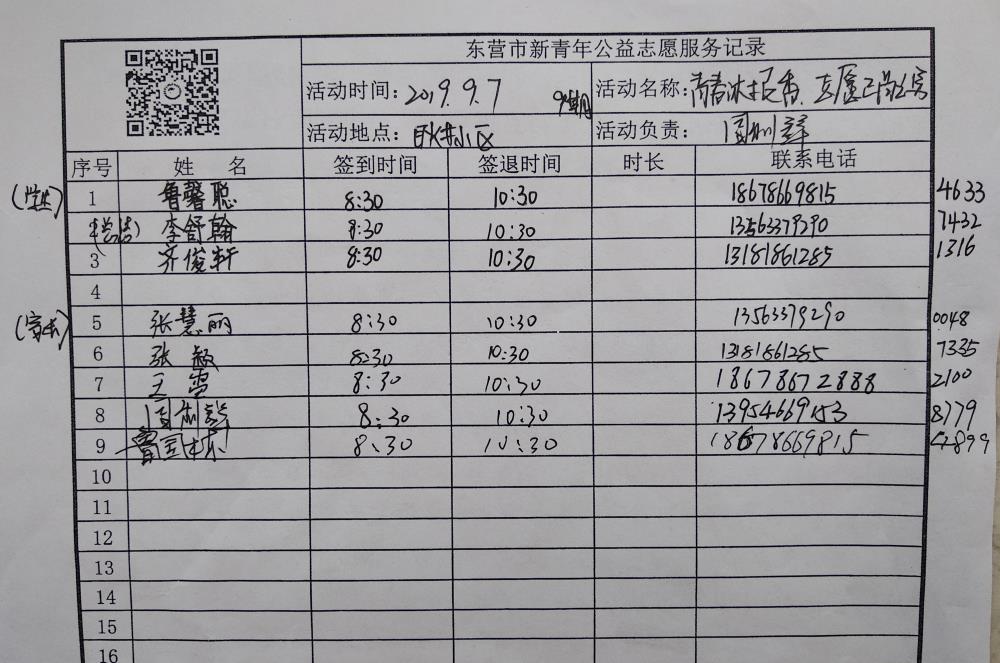 东营市新青年公益志愿服务记录
活动时间：2019.9.7 活动名称：
活动地点： 小区 活动负责：
序号 姓 名 签到时间 签退时间 时长 联系电话
1 鲁馨聪 8:30 10:30 18678669815 4633
李舒翰 8:30 10:30 13563379290 7432
3 齐俊轩 8:30 10:30 13181861285 1316
4
5 张慧丽 8:30 10:30 13563379290 0048
6 张敏 8:30 10:30 13181861285 7335
7 王雪 8:30 10:30 18678672888 2100
8 8:30 10:30 13954669153 8779
9 8:30 10:30 18678669815 4899
10
11
12
13
14
15
16